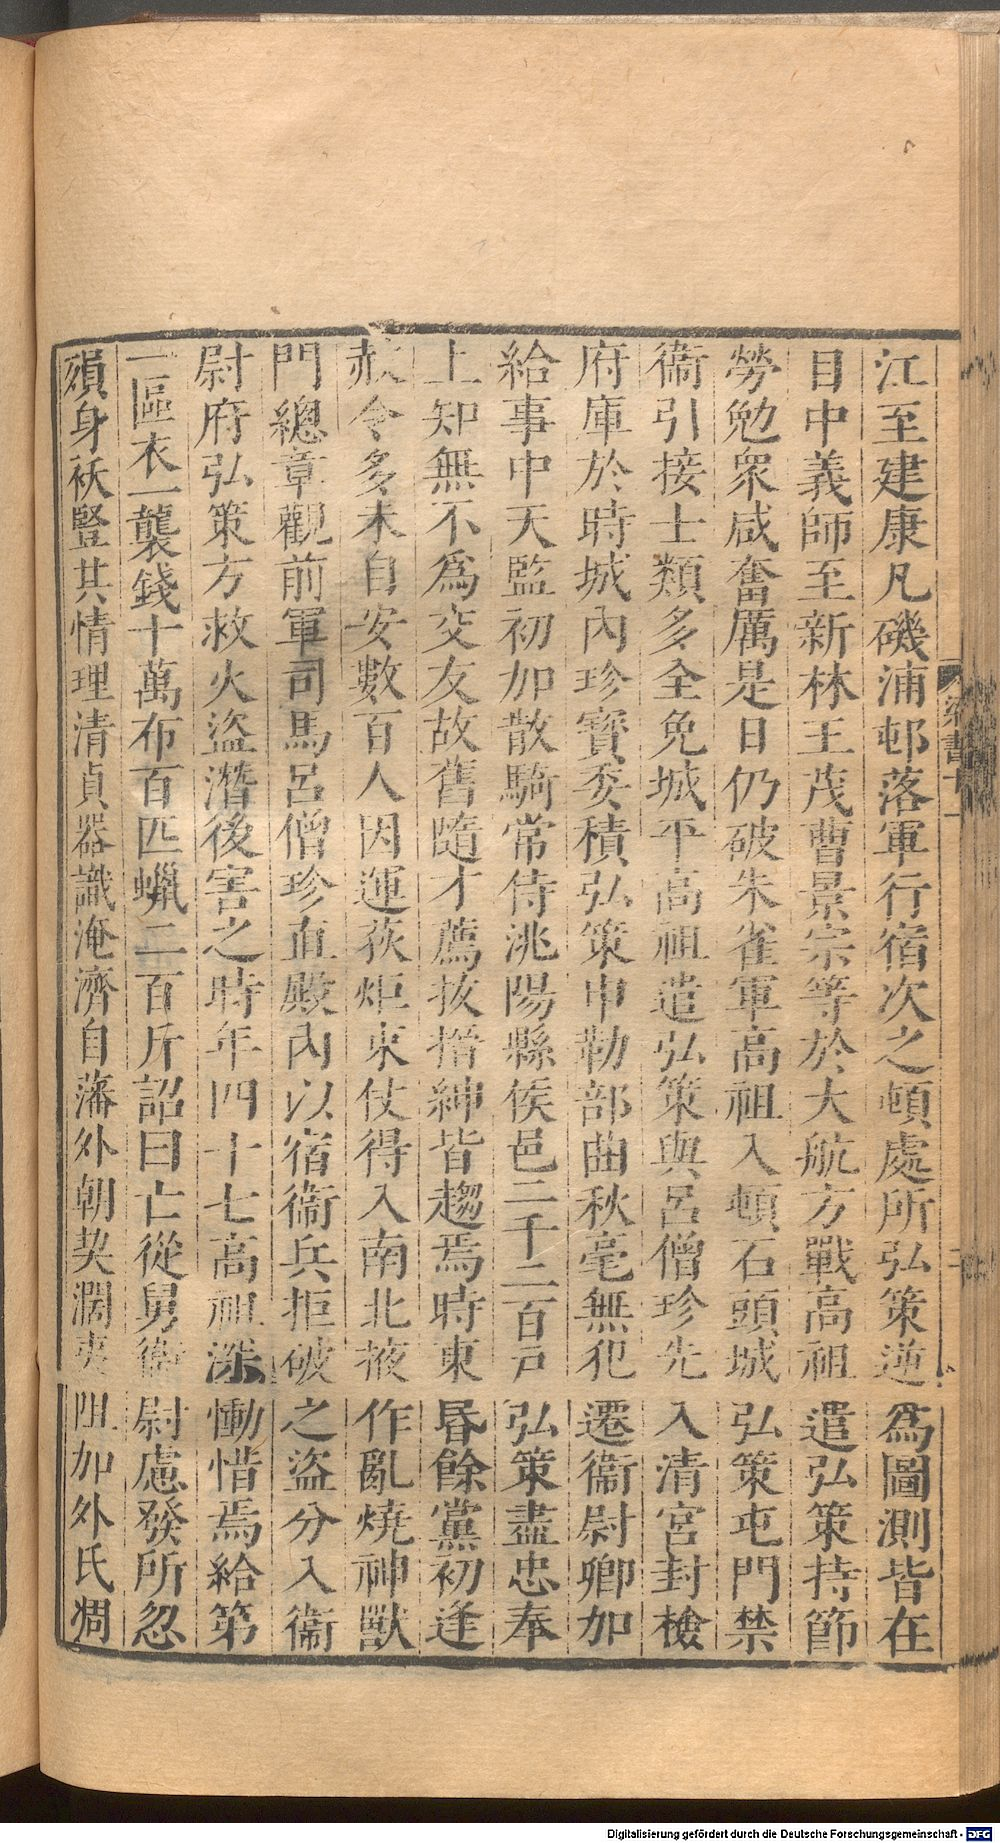 江至建康凡磯浦邨落軍行宿次之頓處所弘策逆為圖測皆在
目中義師至新林王茂曹景宗等於大航方戰高祖遣弘策持節
勞勉衆咸奮厲是日仍破朱雀軍高祖入頓石頭城弘策屯門禁
衞引接士類多全免城平高祖遣弘策與呂僧珍先入清宮封檢
府庫於時城內珍寶委積弘策申勒部曲秋毫無犯遷衞尉卿加
給事中天監初加散騎常侍洮陽縣侯邑二千二百戸弘策盡忠奉
上知無不為交友故舊隨才薦拔搢紳皆趨焉時東昬餘黨初逢
赦令多未自安數百人因運荻炬束仗得入南北掖作亂燒神獸
門總章觀前軍司馬呂僧珍直殿內以宿衞兵拒破之盜分入衞
尉府弘策方救火盜潛後害之時年四十七高祖深慟惜焉給第
一區衣一襲錢十萬布百匹蠟二百斤詔曰亡從舅衞尉慮發所忽
殞身祅豎其情理清貞器識淹濟自藩外朝契濶夷阻加外氏凋
梁書十一
Digitalisierung gefördert durch die Deutsche Forschungsgemeinschaft - DFG